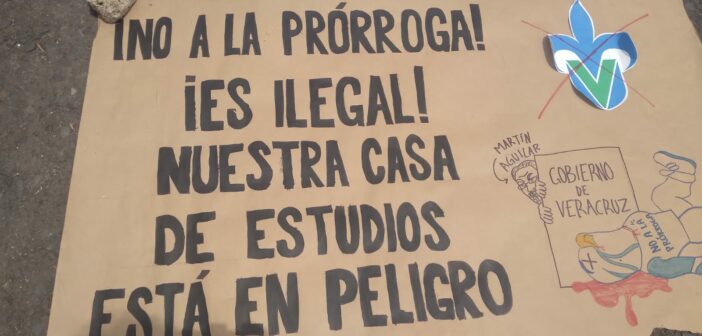 ¡NO A LA PRÓRROGA!
¡ES ILEGAL!
NUESTRA CASA
DE ESTUDIOS
ESTÁ EN PELIGRO
MARTÍN
AGUILAR
GOBIERNO
DE
VERACRUZ
NO A LA
PRÓRROGA